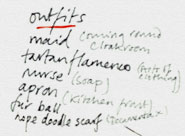 outfits
maid (coming round
cloakroom
tartan flamenco (parts of
clothing)
nurse (soap)
apron
(kitchen front)
fur ball
nope doodle scarf (